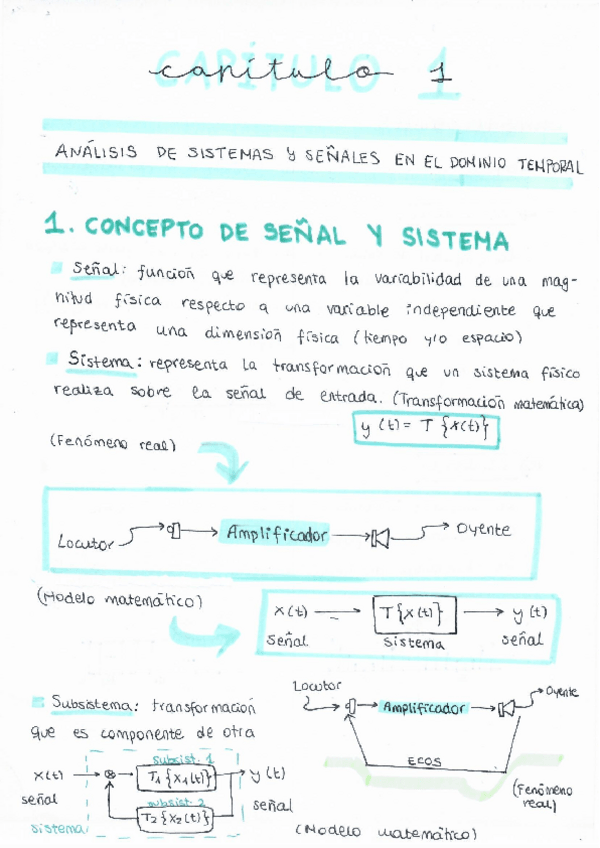 capítulo 1
ANÁLISIS DE SISTEMAS Y SEÑALES EN EL DOMINIO TEMPORAL
1. CONCEPTO DE SEÑAL Y SISTEMA
Señal: función que representa la variabilidad de una mag-
nitud física respecto a una variable independiente que
representa una dimensión física (tiempo y/o espacio)
Sistema: representa la transformación que un sistema físico
realiza sobre la señal de entrada. (Transformación matemática)
y(t) = T {x(t)}
(Fenómeno real)
Locutor → Amplificador → Oyente
(Modelo matemático)
x(t) → T{x(t)} → y(t)
señal sistema señal
Subsistema: transformación
que es componente de otra
Locutor
Amplificador → Oyente
ECOS
(Fenómeno
real)
subsist. 1
x(t) → ⊗ → T1{x1(t)} → y(t)
señal
subsist. 2
señal
T2{x2(t)}
sistema
(Modelo matemático)